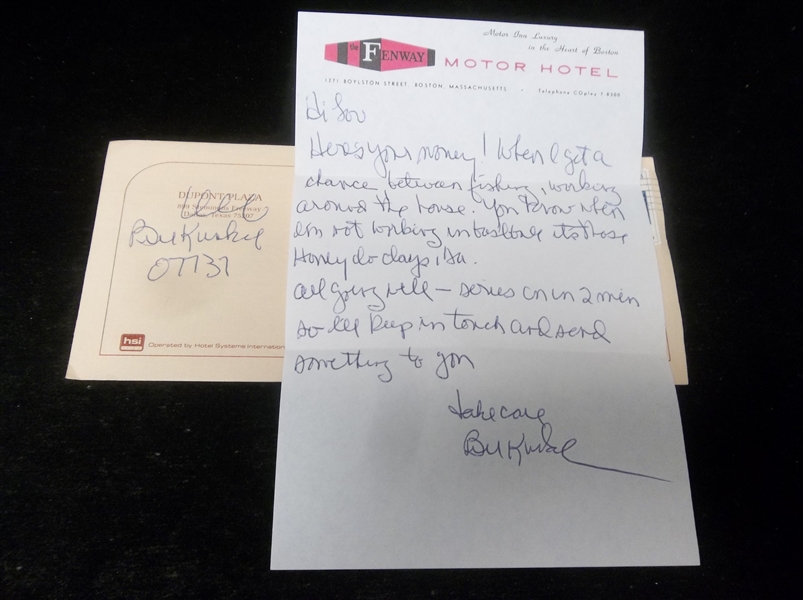 Motor Inn Luxury
in the Heart of Boston
the FENWAY MOTOR HOTEL
1271 BOYLSTON STREET, BOSTON, MASSACHUSETTS • Telephone COpley 7-8300
Hi Lou
Heres your money! When I get a
chance between fishing, working
around the house. You know when
Im not working in baseball its those
Honey do days, Ha.
All going well – series on in 2 min
so Ill keep in touch and send
something to you
take care
Bill Kunkel
DUPONT PLAZA
Stemmons Freeway
Dallas, Texas 75207
Bill Kunkel
07737
hsi
Operated by Hotel Systems International